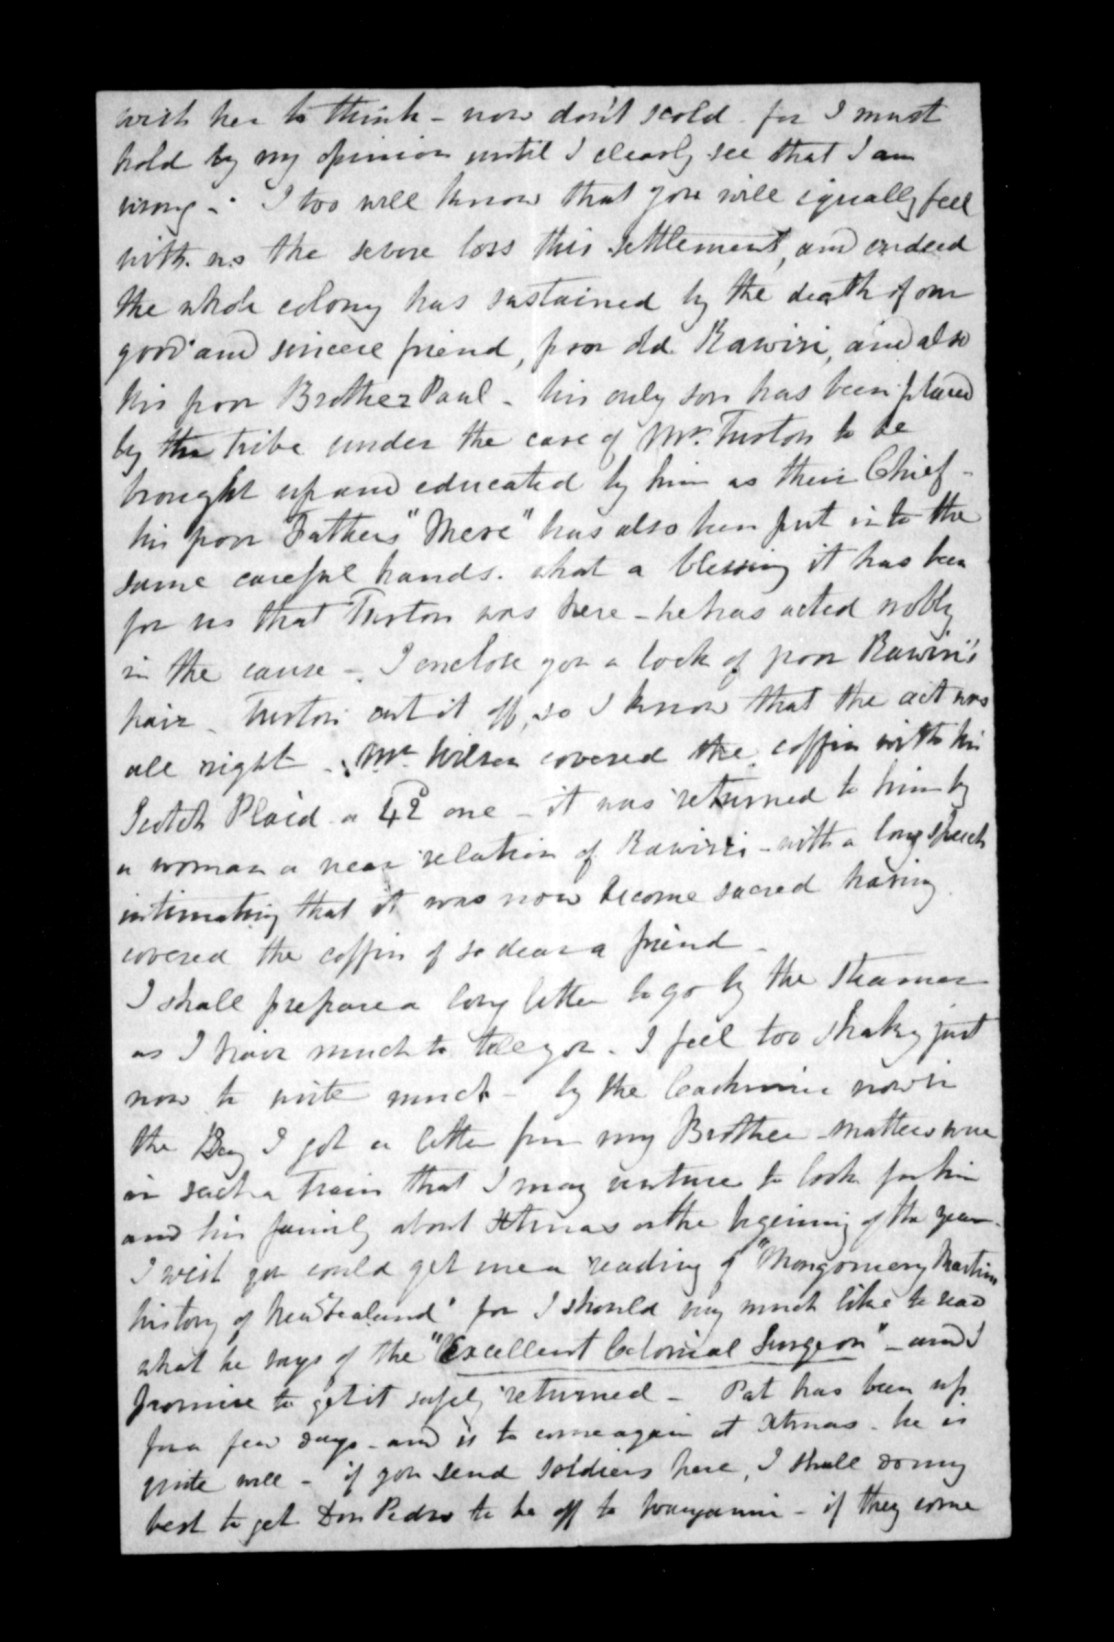 wish her to think - now don't scold - for I must
hold by my opinion until I clearly see that I am
wrong -. I too well know that you will equally feel
with us the severe loss this settlement, and indeed
the whole colony has sustained by the death of our
good and sincere friend, poor old Rawiri, and also
his poor Brother Paul - his only son has been placed
by the tribe under the care of Mr. Turton to be
brought up and educated by him as their Chief -
his poor Fathers "Mere" has also been put into the
same careful hands. what a blessing it has been
for us that Turton was here - he has acted nobly
in the cause -. I enclose you a lock of poor Rawiri's
hair - Turton cut it off, so I know that the act was
all right -. Mr. Wilson covered the coffin with his
Scotch Plaid a 42d one - it was returned to him by
a woman a near relation of Rawiri - with a long speech
intimating that it was now become sacred having
covered the coffin of so dear a friend -
I shall prepare a long letter to go by the Steamer
as I have much to tell you. I feel too shaky just
now to write much - by the Cashmere now in
the Bay I got a letter from my Brother - matters were
in such a train that I may venture to look for him
and his family about Xtmas or the begining of the year -
I wish you could get me a reading of "Mongomery Martins
history of New Zealand" for I should very much like to read
what he says of the "Excellent Colonial Surgeon" - and I
promise to get it safely returned - Pat has been up
for a few days - and is to come again at Xtmas - he is
quite well - if you send soldiers here, I shall do my
best to get Don Pedro to be off to Wanganui - if they come